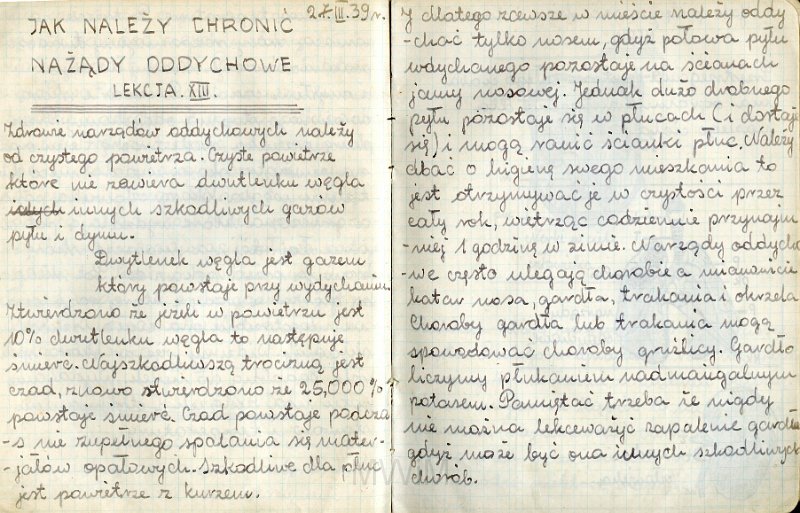 27.III.39r.
JAK NALEŻY CHRONIĆ
NAŻĄDY ODDYCHOWE
LEKCJA. XIII.
Zdrowie narządów oddychowych należy
od czystego powietrza. Czyste powietrze
które nie zawiera dwutlenku węgla
innych szkodliwych gazów
pyłu i dymu.
Dwutlenek węgla jest gazem
który powstaje przy wydychaniu.
Ztwierdzono że jeżili w powietrzu jest
10% dwutlenku węgla to następuje
śmierć. Najszkodliwszą trocizną jest
czad, znowo stwierdzono że 25,000%
powstaje śmierć. Czad powstaje podcza
-s nie zupełnego spalania się mater-
-jałów opałowych. Szkodliwe dla płuc
jest powietrze z kurzem.
I dlatego zawsze w mieście należy oddy
-chać tylko nosem, gdyż połowa pyłu
wdychanego pozostaje na ścianach
jamy nosowej. Jednak dużo drobnego
pyłu pozostaje się w płucach (i dostaje
się) i mogą ranić ścianki płuc. Należy
dbać o higienę swego mieszkania to
jest otrzymywać je w czystości przez
cały rok, wietrząc codziennie przynajm
-niej 1 godzinę w zimie. Narządy oddycho
-we często ulegają chorobie a mianowicie
katar nosa, gardła, trakania i okrzela
Choroby gardła lub trakania mogą
spowodować choroby gruźlicy. Gardło
liczymy płukaniem nadmangalnym
potasem. Pamiętać trzeba że nigdy
nie można lekceważyć zapalenie gardła
gdyż może być ona innych szkodliwych
chorób.
MWM